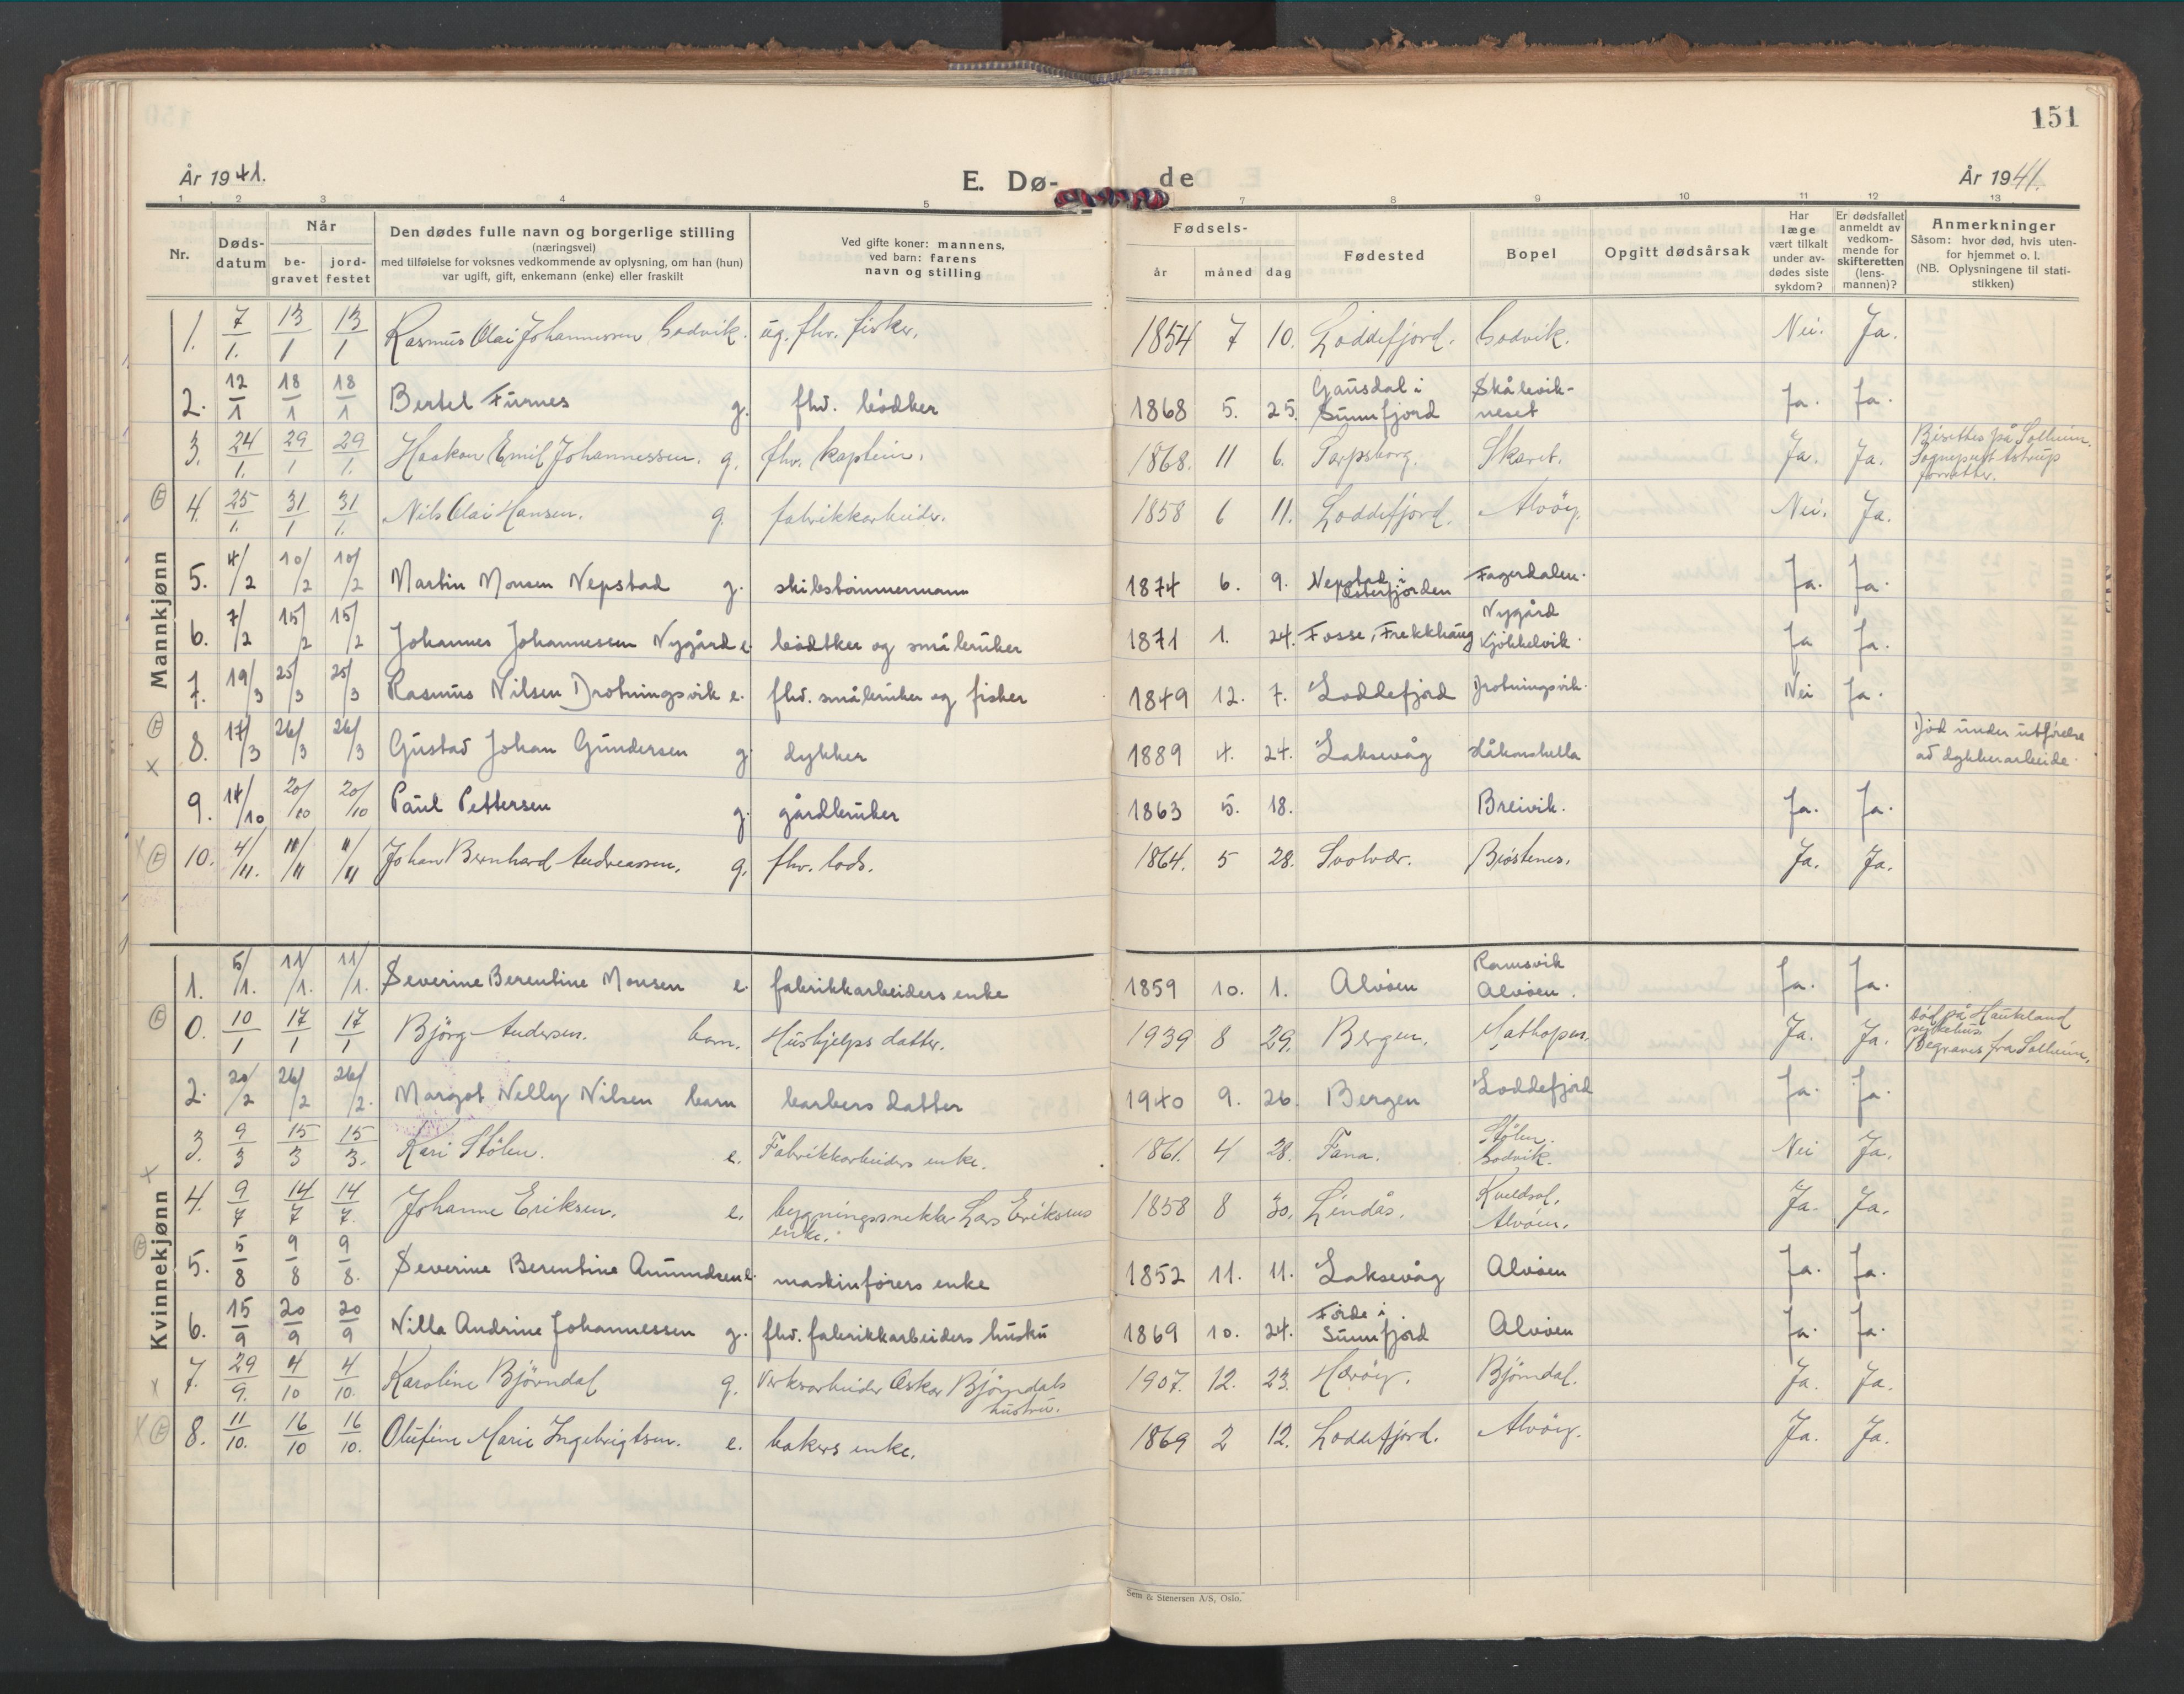 151
År 1941.
E. Dø-
de
År 1941.
1 2 3 4 5 7 8 9 10 11 12 13
Nr.
Døds-
datum
Når
be-
gravet
jord-
festet
Den dødes fulle navn og borgerlige stilling
(næringsvei)
med tilføielse for voksnes vedkommende av oplysning, om han (hun)
var ugift, gift, enkemann (enke) eller fraskilt
Ved gifte koner: mannens,
ved barn: farens
navn og stilling
Fødsels-
år måned dag
Fødested
Bopel
Opgitt dødsårsak
Har
læge
vært tilkalt
under av-
dødes siste
sykdom?
Er dødsfallet
anmeldt av
vedkom-
mende for
skifteretten
(lens-
mannen)?
Anmerkninger
Såsom: hvor død, hvis uten-
for hjemmet o. l.
(NB. Oplysningene til stati-
stikken)
Mannkjønn
1. 7/1. 13/1 13/1 Rasmus Olai Johannessen Godvik. ug. fhv. fisker. 1854 7 10. Loddefjord. Godvik. Nei. Ja.
2. 12/1 18/1 18/1 Bertel Furnes g. fhv. bödker 1868 5. 25. Gausdal i Sunnfjord Skålevik-neset Ja. Ja.
3. 24/1. 29/1 29/1. Haakon Emil Johannessen. g. fhv. kaptein. 1868. 11 6. Sarpsborg. Skaret. Ja. Ja. Bisettes på Solheim. Sogneprest Astrup forretter.
4. 25/1. 31/1 31/1. Nils Olai Hansen. g. fabrikkarbeider. 1858 6 11. Loddefjord. Alvöy. Nei. Ja.
5. 4/2 10/2 10/2 Martin Monsen Nepstad g. skibstömmermann 1874 6. 9. Nepstad i Osterfjorden Fagerdalen. Ja. Ja.
6. 7/2 15/2 15/2 Johannes Johannessen Nygård e. bödtker og småbruker 1871 1. 24. Fosse, Frekkhaug Nygård Kjökkelvik. Ja Ja.
7. 19/3 25/3 25/3 Rasmus Nilsen Drotningsvik e. fhv. småbruker og fisker 1849 12. 7. Loddefjord Drotningsvik. Nei Ja.
8. 17/3 26/3 26/3 Gustav Johan Gundersen g. dykker 1889 4. 24. Laksevåg Håkonshella Död under utförelse av dykkerarbeide.
9. 14/10 20/10 20/10 Paul Pettersen g. gårdbruker 1863 5. 18. Breivik. Ja. Ja.
10. 4/11. 11/11 11/11 Johan Bernhard Andreassen. g. fhv. lods. 1864. 5 28. Svolvær. Bröstenes. Ja. Ja.
Kvinnekjønn
1. 5/1. 11/1. 11/1. Severine Berentine Monsen e. fabrikkarbeiders enke 1859 10. 1. Alvöen Ramsvik Alvöen. Ja. Ja.
0. 10/1 17/1 17/1 Björg Andersen. barn. Hushjelps datter. 1939 8 29. Bergen. Mathopen. Ja. Ja. Död på Haukeland sykehus. Begraves fra Solheim.
2. 20/2 26/2 26/2. Margot Nelly Nilsen barn barbers datter 1940 9. 26. Bergen Loddefjord Ja. Ja.
3. 9/3 15/3 15/3. Kari Stölen. e. Fabrikkarbeiders enke. 1861. 4 28. Fana. Stölen. Godvik. Nei Ja.
4. 9/7 14/7 14/7. Johanne Eriksen. e. bygningssnekker Lars Eriksens enke. 1858 8 30. Lindås. Kveldsol. Alvöen. Ja. Ja.
5. 5/8 9/8 9/8. Severine Berentine Amundsen e. maskinförers enke 1852 11. 11. Laksevåg Alvöen Ja. Ja.
6. 15/9 20/9 20/9 Nilla Andrine Johannessen g. fhv. fabrikkarbeiders hustru 1869 10. 24. Förde i Sunnfjord Alvöen Ja. Ja.
7. 29/9. 4/10 4/10. Karoline Björndal g. Verksarbeider Oskar Björndals hustru. 1907. 12. 23. Heröy. Björndal. Ja. Ja.
8. 11/10. 16/10 16/10. Olufine Marie Ingebrigtsen. e. bakers enke. 1869 2 12. Loddefjord. Alvöy. Ja. Ja.
Sem & Stenersen A/S, Oslo.